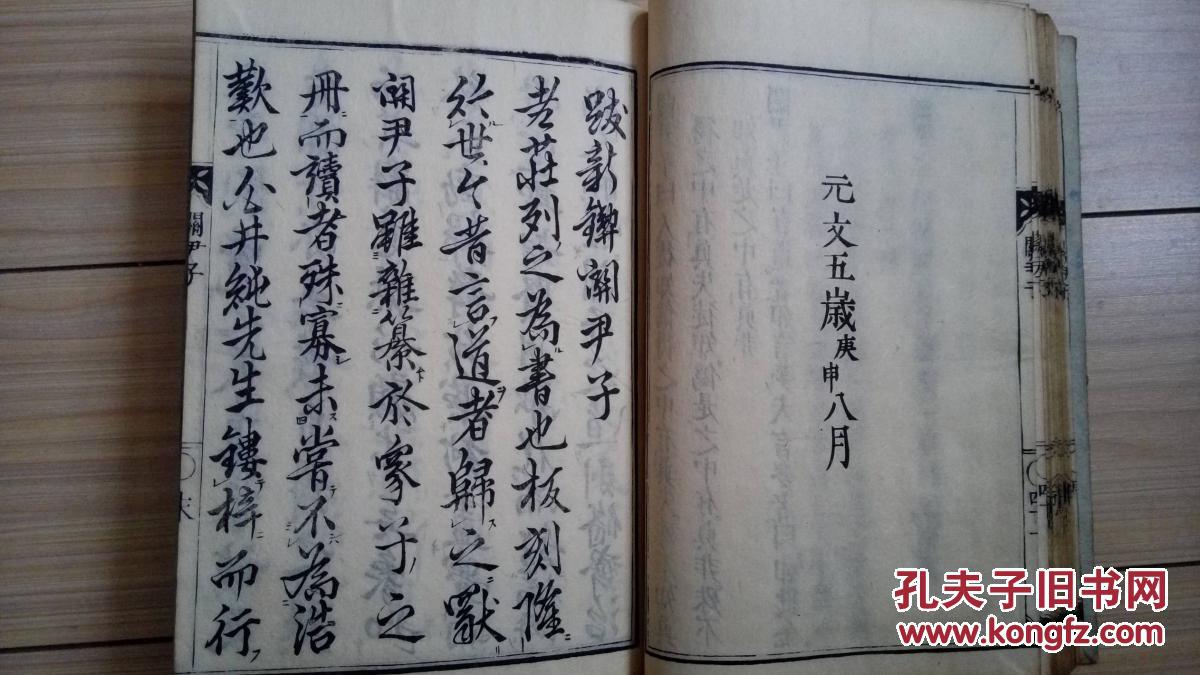 元文五歳庚申八月
跋新鐫関尹子
老莊列之為書也板刻隆
於世今昔言道者歸之獨
関尹子雖雜纂於家子之
冊而讀者殊寡未嘗不為浩
歎也井純先生鏤梓而行
關尹子
末
孔夫子旧书网
www.kongfz.com